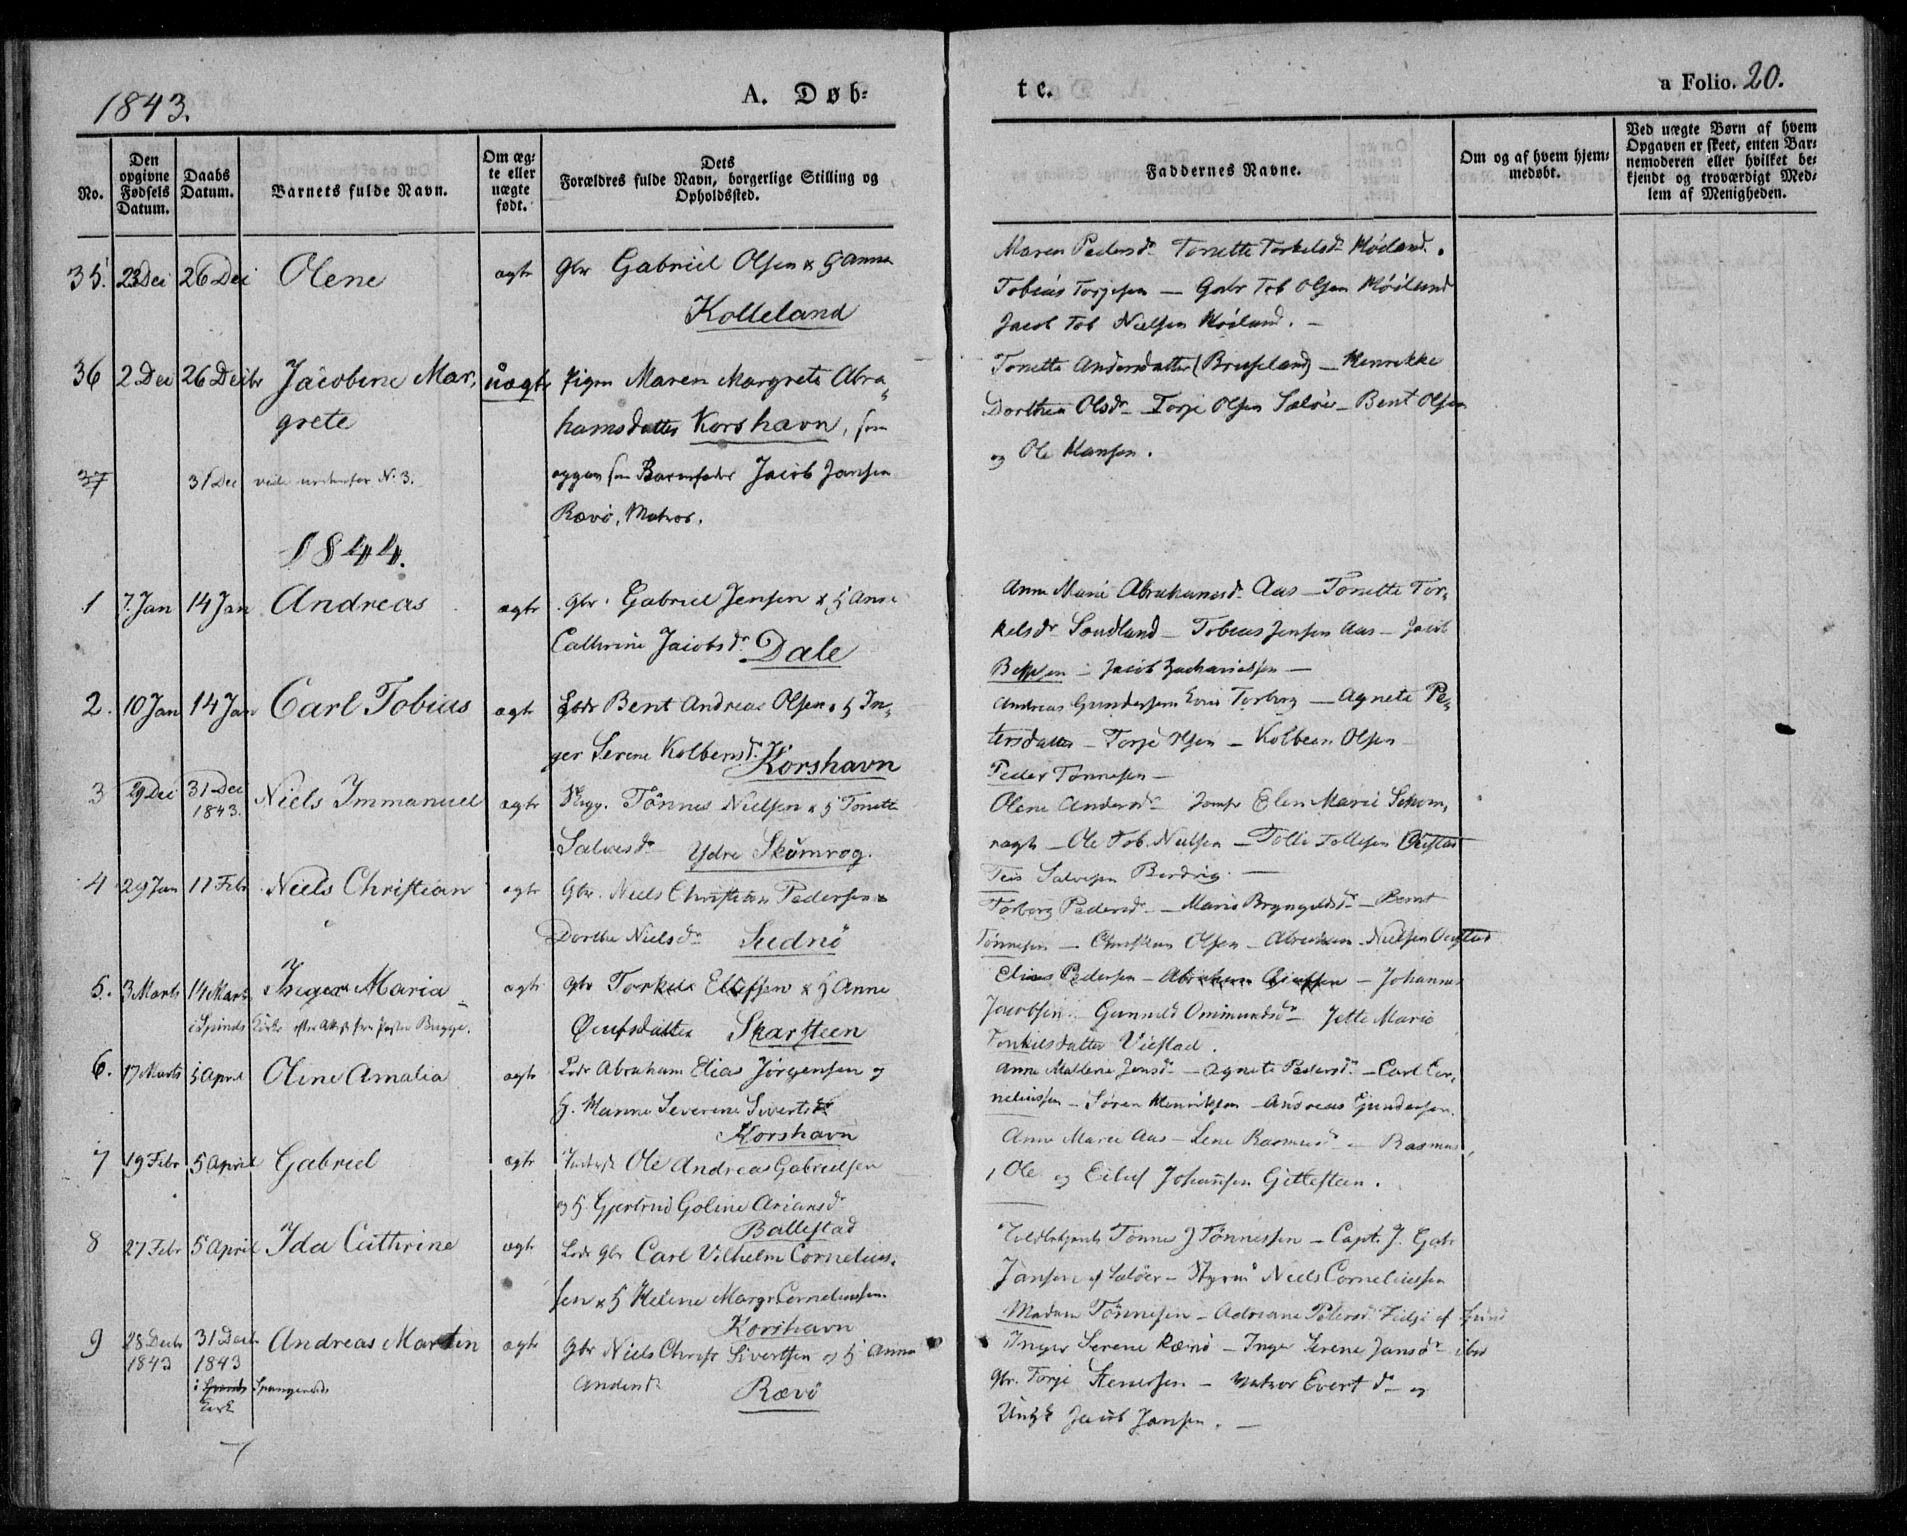 1843.
A. Døb-
tc.
a Folio. 20.
No.
Den opgivne Fødsels Datum.
Daabs Datum.
Barnets fulde Navn.
Om æg-
te eller
uægte
født.
Dets
Forældres fulde Navn, borgerlige Stilling og
Opholdssted.
Faddernes Navne.
Om og af hvem hjem-
medøbt.
Ved uægte Børn af hvem
Opgaven er skeet, enten Bar-
nemoderen eller hvilket be-
kjendt og troværdigt Med-
lem af Menigheden.
35. 23 Dei 26 Dei Olene ægte Gbr Gabriel Olsen & H Anna
Kolleland
Maren Pedersdr Tonette Torkelsdr Höiland.
Tobias Torjesen — Gabr Tob Olsen Höiland
Jacob Tob Nielsen Höiland. —
36 2 Dei 26 Deibr Jacobine Mar,
grete
uægte Pigen Maren Margrete Abra,
hamsdatter Korshavn, som
opgav som Barnefader Jacob Jansen
Rævö, Matros.
Tonette Andersdatter (Bruseland) — Henrikke
Dorthea Olsdr — Torje Olsen Salöe — Bent Olsen
og Ole Hansen.
37 31 Dei vide nedenfor No 3.
1844.
1 7. Jan 14 Jan Andreas ægte Gbr. Gabriel Jensen & H Anne
Cathrine Jacobsdr Dale
Anne Marie Abrahamsdr Aas — Tonette Tor,
kelsdr Sandland — Tobias Jensen Aas — Jacob
— Jacob Zachariassen —
2. 10 Jan 14 Jan Carl Tobias ægte Lodr Bent Andreas Olsen & H In,
ger Serene Kolbensdr Korshavn
Andreas Gundersens Torborg — Agnete Pe,
tersdatter — Torje Olsen — Kolbean Olsen
Peder Tönnesen —
3 29 Dei 31 Dei
1843.
Niels Immanuel ægte Tönnes Nielsen & H Tonette
Salvesdr Ydre Skomrog.
Olene Andersdr Jomfr Elen Marie Skom,
ragh — Ole Tob. Nielsen — Tolle Tollesen
Teis Salvesen —
4 29 Jan 11 Febr Niels Christian ægte Gbr. Niels Christian Pedersen &
Dorthe Nielsdr
Torborg Pedersdr — Marie Bryngelsdr — Bernt
Tönnesen — Christian Olsen — Abraham Nielsen
5. 3 Marts 14 Marts Inger Maria ægte Gbr Torkel Ellefsen & H Anne
i Spinds Kirke efter Attest fra Pastor Bugge.
Skarsteen
Elias Pedersen — Abraham — Johannes
Jacobsen. Gunnild Ommundsdr Jette Marie
Torkilsdatter Viestad.
6. 17 Marts 5 April Oline Amalia ægte Lodr Abraham Elias Jörgensen og
H. Hanne Severine Sivertsdr
Korshavn
Anne Mallene Jensdr — Agnete Pedersdr — Carl Cor,
neliussen — Sören Henriksen — Andreas Gundersen.
7 19 Febr 5 April Gabriel ægte Ole Andreas Gabrielsen
og H. Gjertrud Goline Ariansdr
Ballestad
Anne Marie Aas — Lene Rasmusdr — Rasmus,
Ole og Eiluf Johansen Gittesteen.
8 27 Febr 5 April Ida Cathrine ægte Lodr Gbr Carl Vilhelm Cornelius,
sen & H Helene Margr Corneliussen
Korshavn
Toldbetjent Tönnes J Tönnessen — Capt. J. Gabr
Jansen af Salöer — Styrm Niels Corneliussen
Madam Tönnesen — Adriane Petersdr
9 28 Decbr
1843
31 Decbr
1843
i Spangereids
Kirk
Andreas Martin ægte Gbr Niels Christ Sivertsen og H Anna
Andersdr Rævö
Inger Serene Rævö — Inger Serene Jansdr ibid
Gbr. Torje Stenersen — Matros Evert do og
Ungk Jacob Jansen. —